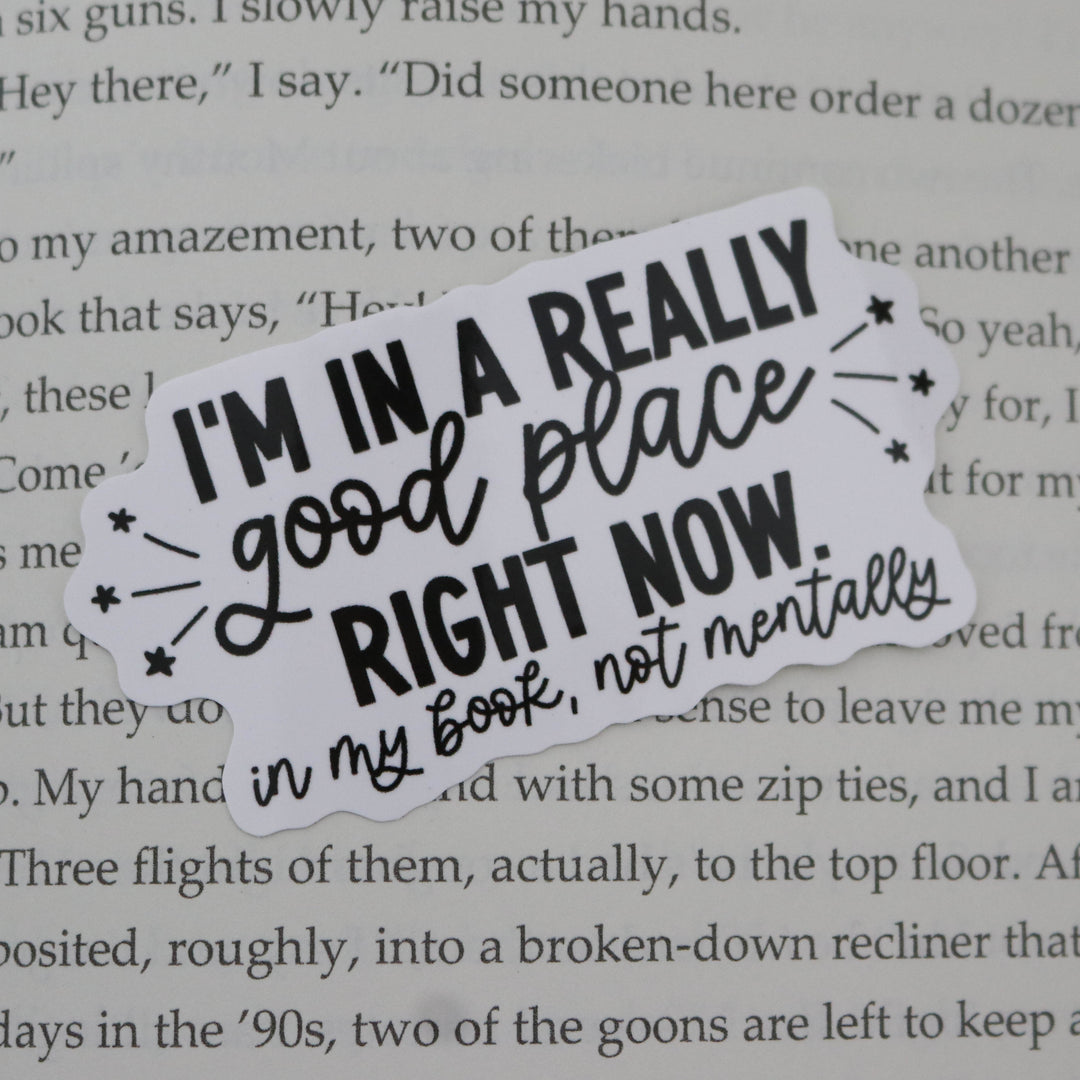 six guns. I slowly raise my hands.
Hey there,” I say. “Did someone here order a dozen
”
o my amazement, two of one another
ook that says, “Hey! So yeah,
, these y for, I
Come t for my
s me
am oved fro
But they do sense to leave me my
. My hand with some zip ties, and I a
Three flights of them, actually, to the top floor. Af
posited, roughly, into a broken-down recliner that
days in the ’90s, two of the goons are left to keep a
I'M IN A REALLY
good place
RIGHT NOW.
in my book, not mentally